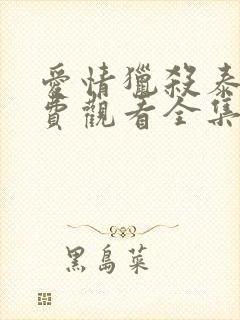 愛情獵殺泰
費觀看全集
黑島菜